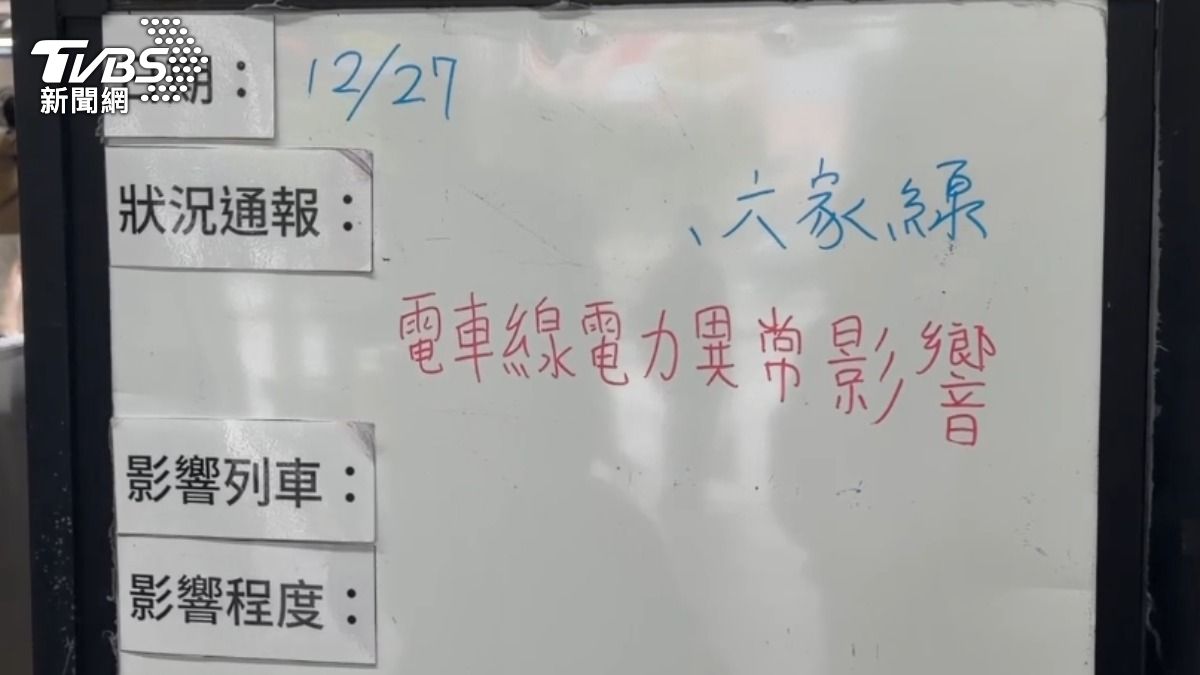 TVBS
新聞網
期：
12/27
狀況通報：
、六家線
電車線電力異常影響
影響列車：
影響程度：